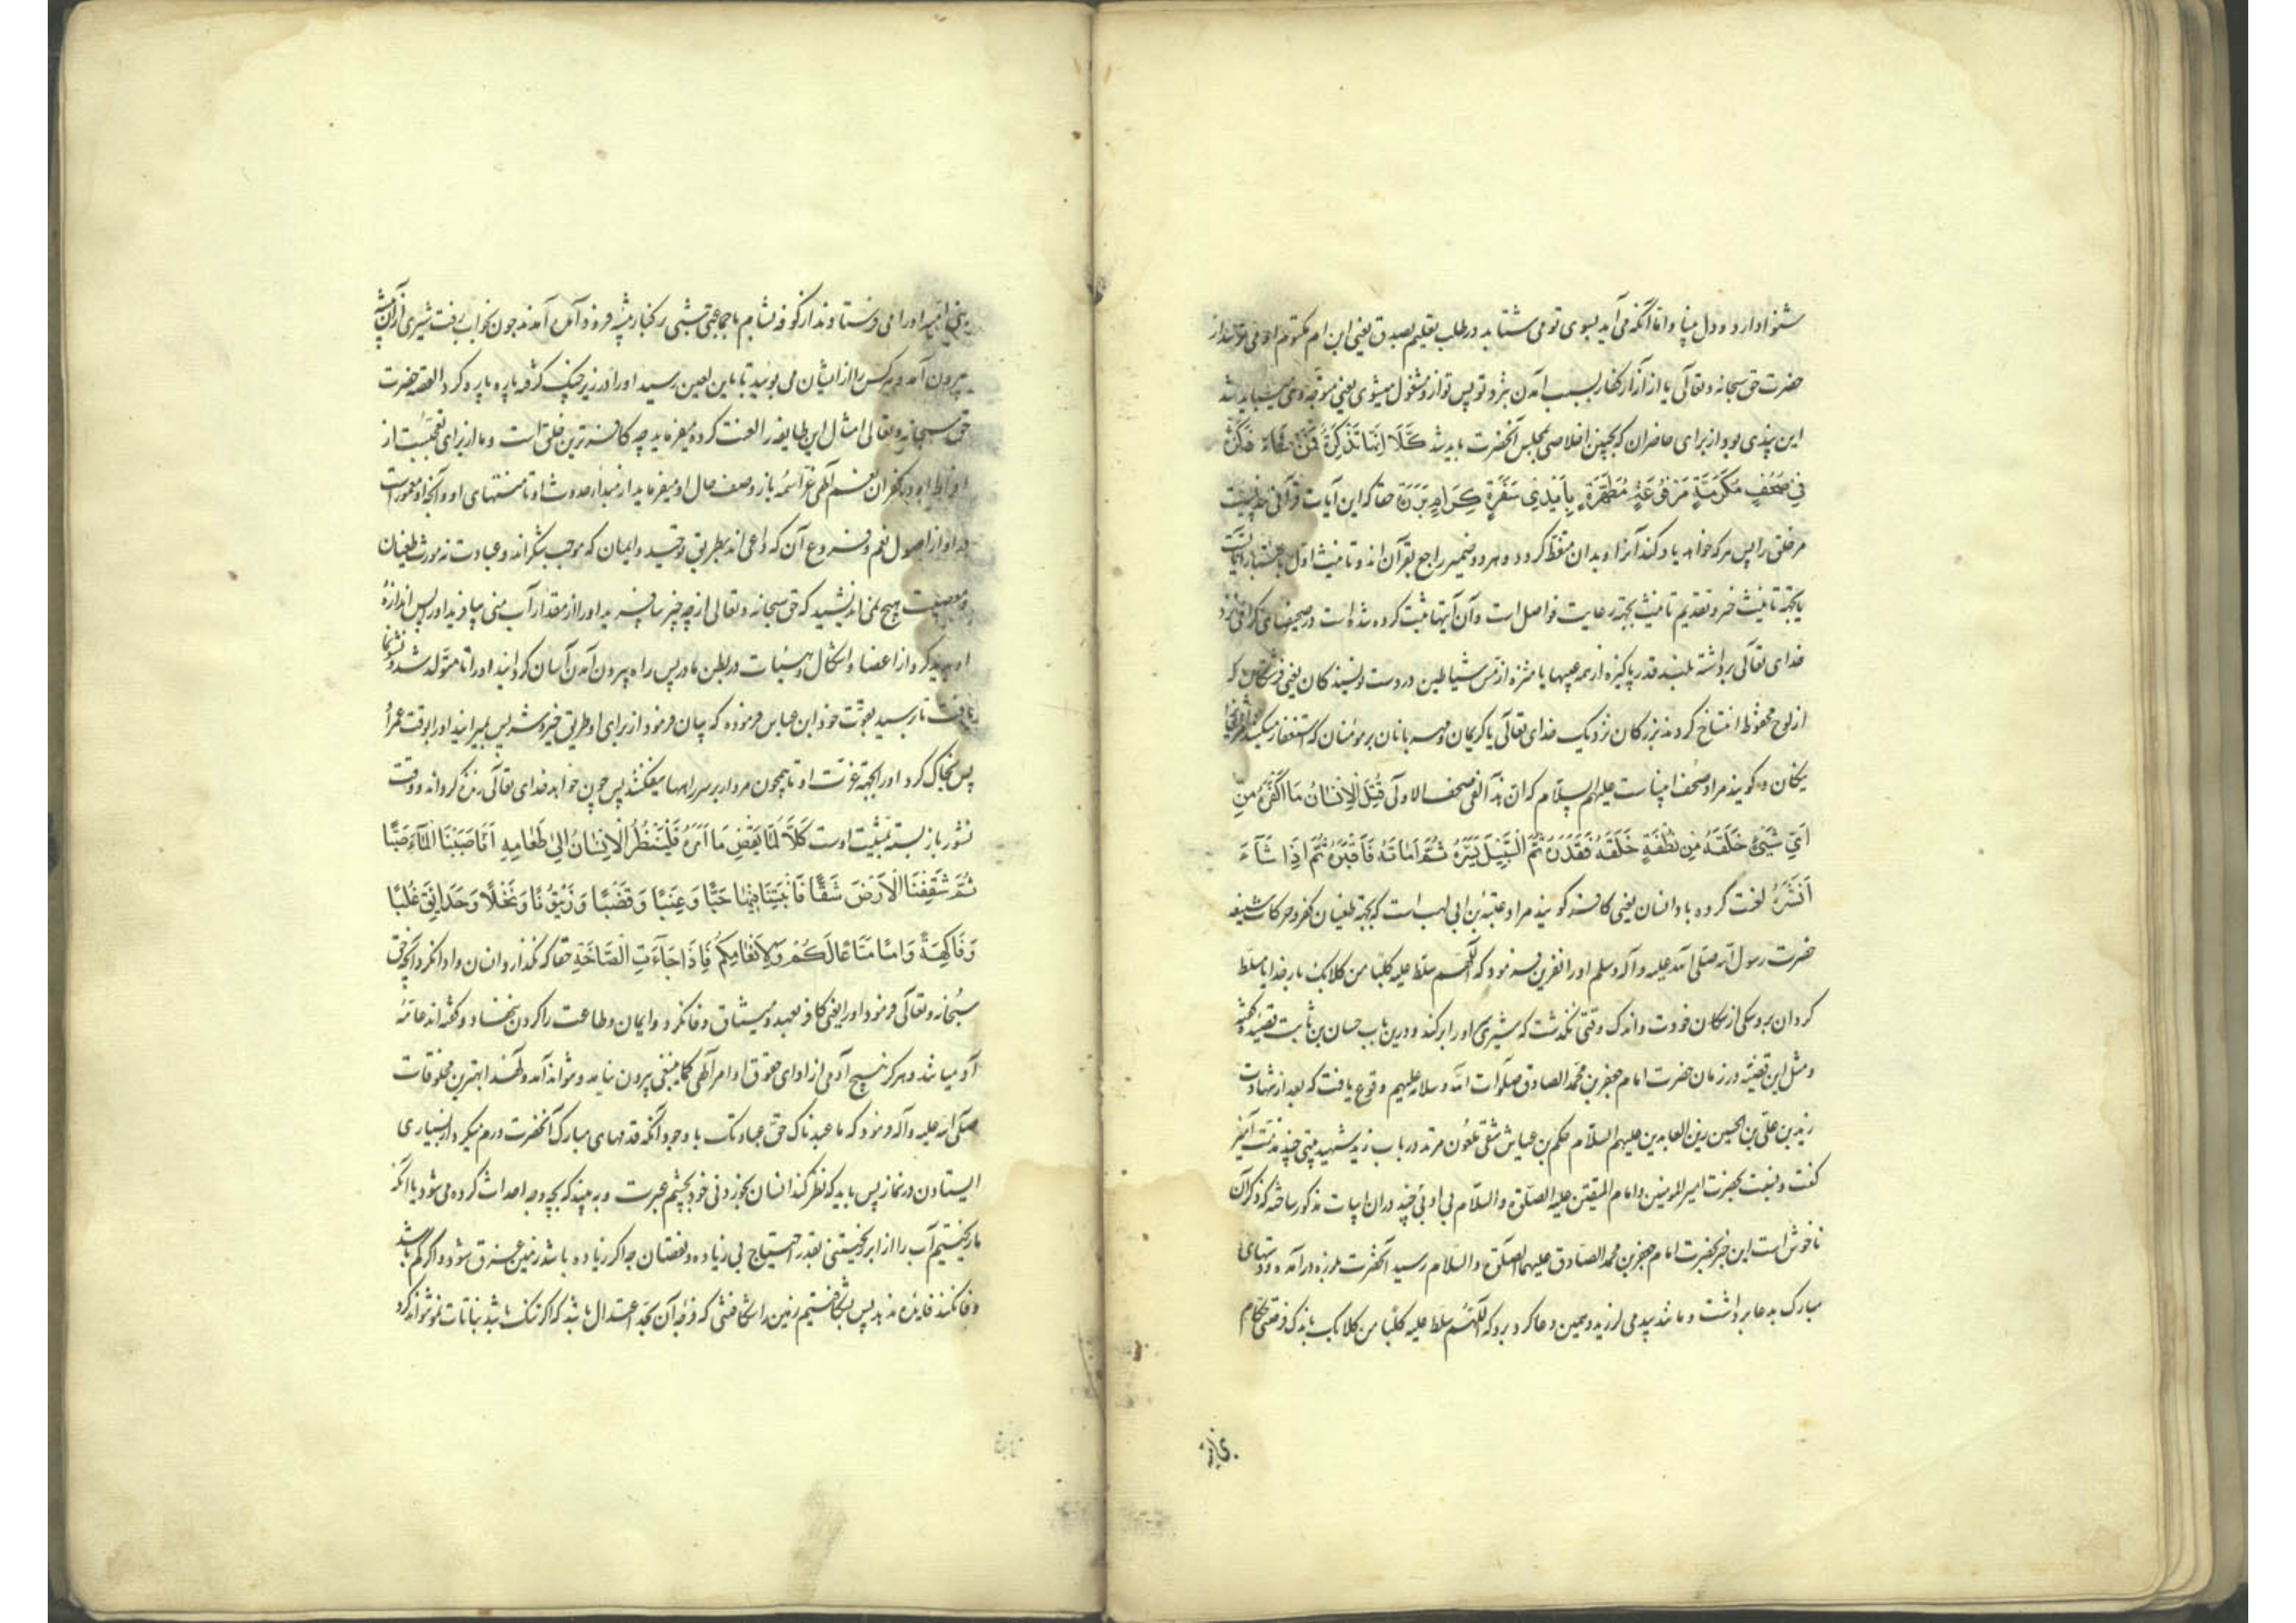 شنوا دارد و دل بینا و اما آنکه می آید بسوی تو می شتابد در طلب تعلیم بصدق یعنی ابن ام مکتوم او می ترسد از
حضرت حق سبحانه و تعالی یا از آزار کفار بسبب آمدن بنزد تو پس تو ازو مشغول میشوی یعنی متوجه وی نمیباید شد
این پندی بود از برای حاضران که بچنین اخلاصی بمجلس آنحضرت بیایند كَلَّا اِنَّهَا تَذْكِرَةٌ فَمَنْ شَاءَ ذَكَرَهُ
فِي صُحُفٍ مُكَرَّمَةٍ مَرْفُوعَةٍ مُطَهَّرَةٍ بِاَيْدِي سَفَرَةٍ كِرَامٍ بَرَرَةٍ حقا که این آیات قرآنی پندیست
مر خلق را پس هر که خواهد یاد کند آنرا و بدان متعظ کردد و هر دو ضمیر راجع بقرآن اند و تانیث اول باعتبار آیاتست
یا بجهة تانیث خبر و تقدیم تانیث بجهة رعایت فواصل است و آن آیتها ثبت کرده شده است در صحیفهای گرامی نزد
خدای تعالی برداشته بلند قدر پاکیزه از همه عیبها یا منزه از مس شیاطین در دست نویسندکان یعنی فرشتکان که
از لوح محفوظ انتساخ کردند بزرکان نزدیک خدای تعالی یا کریمان و مهربانان بر مؤمنان که استغفار میکنند
نیکان و کویند مراد صحف انبیاست علیهم السلام که ان هذا لفی صحف الاولی قُتِلَ الْاِنْسَانُ مَا اَكْفَرَهُ مِنْ
اَيِّ شَيْءٍ خَلَقَهُ مِنْ نُطْفَةٍ خَلَقَهُ فَقَدَّرَهُ ثُمَّ السَّبِيلَ يَسَّرَهُ ثُمَّ اَمَاتَهُ فَاَقْبَرَهُ ثُمَّ اِذَا شَآءَ
اَنْشَرَهُ لعنت کرده باد انسان یعنی کافر کویند مراد عتبه بن ابی لهب است که بجهة طغیان کفر و حرکات شنیعه
حضرت رسول الله صلی الله علیه و آله و سلم او را نفرین فرمود که اللهم سلط علیه کلبا من کلابک بار خدایا مسلط
کردان برو سکی از سکان خودت و اندک وقتی نکذشت که شیری او را بر کند و درین باب حسان بن ثابت قصیده کفته
و مثل این قضیه در زمان حضرت امام جعفر بن محمد الصادق صلوات الله و سلامه علیهم وقوع یافت که بعد از شهادت
زید بن علی بن الحسین زین العابدین علیهم السلام حکم بن عیاش شقی ملعون مرتد در باب زید شهید بیتی چند مذمت آمیز
کفت و نسبت بحضرت امیر المومنین و امام المتقین علیه الصلوة و السلام بی ادبی چند در ان ابیات مذکور ساخته که ذکر آن
ناخوش است این خبر بحضرت امام جعفر بن محمد الصادق علیهما الصلوة و السلام رسید آنحضرت بلرزه در آمده و دستهای
مبارک بدعا برداشت و مانند بید می لرزید و همین دعا کرد برو که اللهم سلط علیه کلبا من کلابک باندک فرصتی حکام
بنی امیه
بنی امیه او را می فرستادند از کوفه بشام با جماعتی شبی بر کنار بیشه فرود آمدند چون بخواب رفت شیری از آن بیشه
بیرون آمد و هر کس را از ایشان می بوئید تا باین لعین رسید او را در زیر چنک کرفته پاره پاره کرد القصه حضرت
حق سبحانه و تعالی امثال این طایفه را لعنت کرده میفرماید چه کافر ترین خلقی است و ما از برای تعجبست از
افراط او در کفران نعم الهی عز اسمه باز وصف حال او میفرماید از مبدأ حدوث او تا منتهای او و آنچه او مغمورست
در او از اصول نعم و فروع آن که داعی اند بطریق توحید و ایمان که موجب شکرانه و عبادت نه مورث طغیان
و معصیت هیچ نمی اندیشید که حق سبحانه و تعالی از چه چیز بیافرید او را از مقدار آب منی بیافرید او را پس اندازهٔ
او پدید کرد از اعضا و اشکال و هیئات در بطن مادر پس راه بیرون آمدن آسان کردانید او را تا متولد شد و نشو و نما
یافت تا رسید بقوت خود ابن عباس فرموده که بیان فرمود از برای او طریق خیر و شر پس بمیرانید او را بوقت عمر او
پس بخاک کرد او را بجهة عزت او تا همچون مردار بر سر راهها نیفکنند پس چون خواهد خدای تعالی زنده کرداند و وقت
نشور باز بسته بمشیت اوست كَلَّا لَمَّا يَقْضِ مَا اَمَرَهُ فَلْيَنْظُرِ الْاِنْسَانُ اِلٰى طَعَامِهِ اَنَّا صَبَبْنَا الْمَآءَ صَبًّا
ثُمَّ شَقَقْنَا الْاَرْضَ شَقًّا فَاَنْبَتْنَا فِيهَا حَبًّا وَعِنَبًا وَقَضْبًا وَزَيْتُونًا وَنَخْلًا وَحَدَائِقَ غُلْبًا
وَفَاكِهَةً وَاَبًّا مَتَاعًا لَكُمْ وَلِاَنْعَامِكُمْ فَاِذَا جَآءَتِ الصَّاخَّةُ حقا که نکذارد انسان و ادا نکرد آنچه حق
سبحانه و تعالی فرمود او را یعنی کافر بعهد و میثاق وفا نکرد و ایمان و طاعت را کردن ننهاد و کفته اند عامه
آدمیا شد و هرکز هیچ آدمی از ادای حقوق اوامر الهی کما ینبغی بیرون نیامد و نتواند آمد و لهذا بهترین مخلوقات
صلی الله علیه و آله فرمود که ما عبدناک حق عبادتک با وجود آنکه قدمهای مبارک آنحضرت ورم میکرد از بسیاری
ایستادن در نماز پس باید که نظر کند انسان بخوردنی خود بچشم عبرت و به بیند که بچه وجه احداث کرده می شود یا آنکه
ما ریختیم آب را از ابر ریختنی بقدر احتیاج بی زیاده و نقصان چه اکر زیاده باشد زمین غرق شود و اکر کم باشد
وفا نکند فایده ندهد پس بشکافتیم زمین را شکافتنی که فرجهٔ آن بحد اعتدال باشد که اکر تنک باشد نباتات نمو نتواند کرد